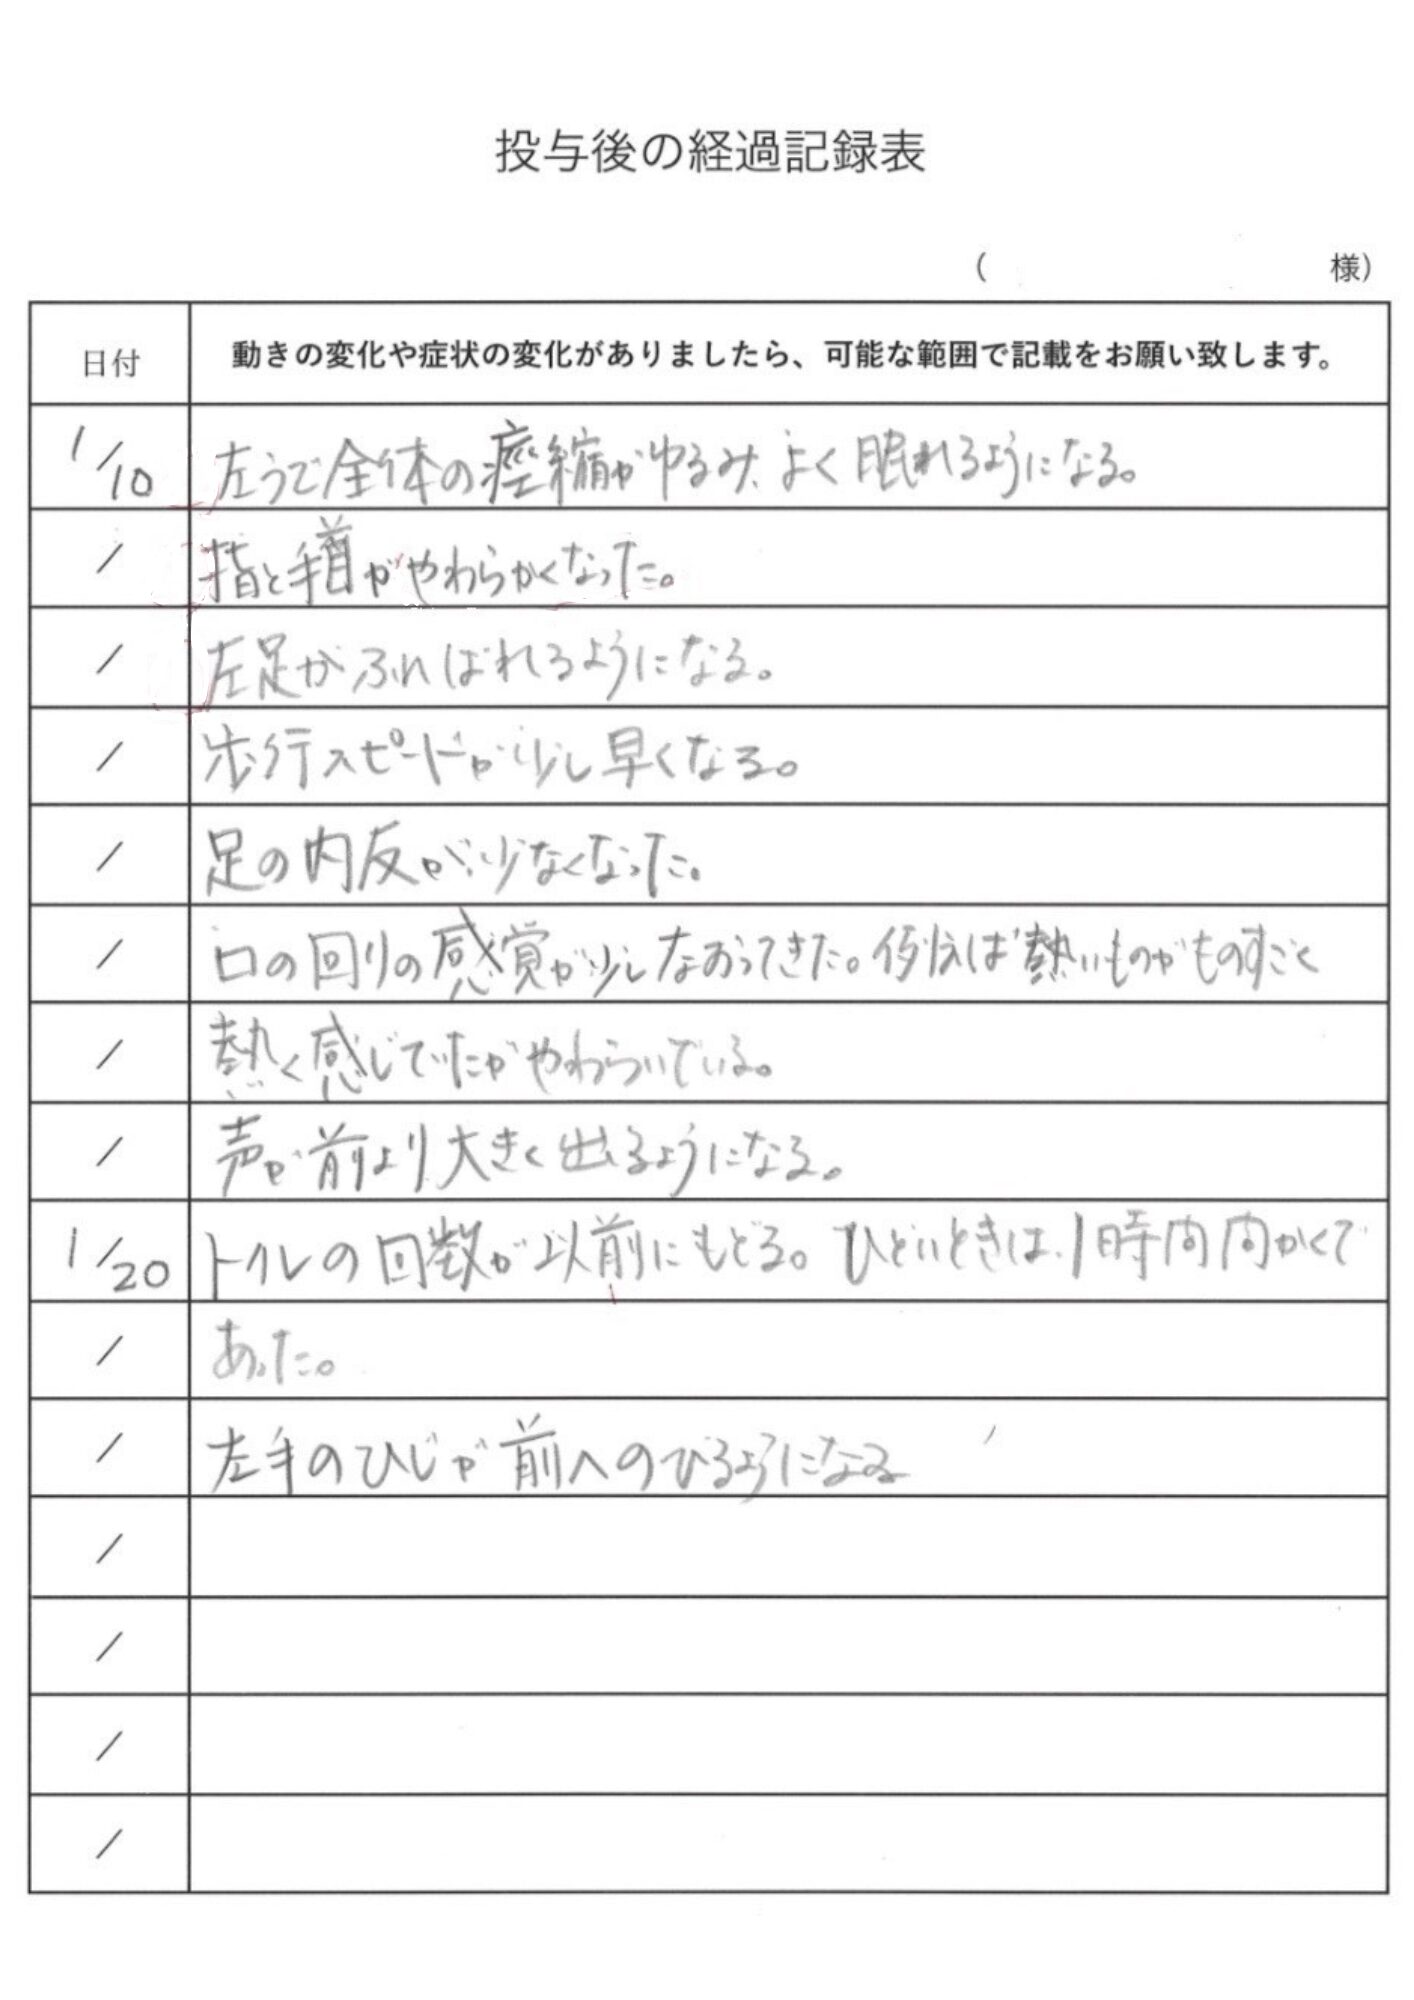 投与後の経過記録表
（ 様）
日付 動きの変化や症状の変化がありましたら、可能な範囲で記載をお願い致します。
1/10 左うで全体の痙縮がゆるみ、よく眠れるようになる。
/ 指と手首がやわらかくなった。
/ 左足がふんばれるようになる。
/ 歩行スピードが少し早くなる。
/ 足の内反が少なくなった。
/ 口の回りの感覚が少しなおってきた。例えば熱いものがものすごく
/ 熱く感じていたがやわらいでいる。
/ 声が前より大きく出るようになる。
1/20 トイレの回数が以前にもどる。ひどいときは、1時間間かくで
/ あった。
/ 左手のひじが前へのびるようになる
/
/
/
/